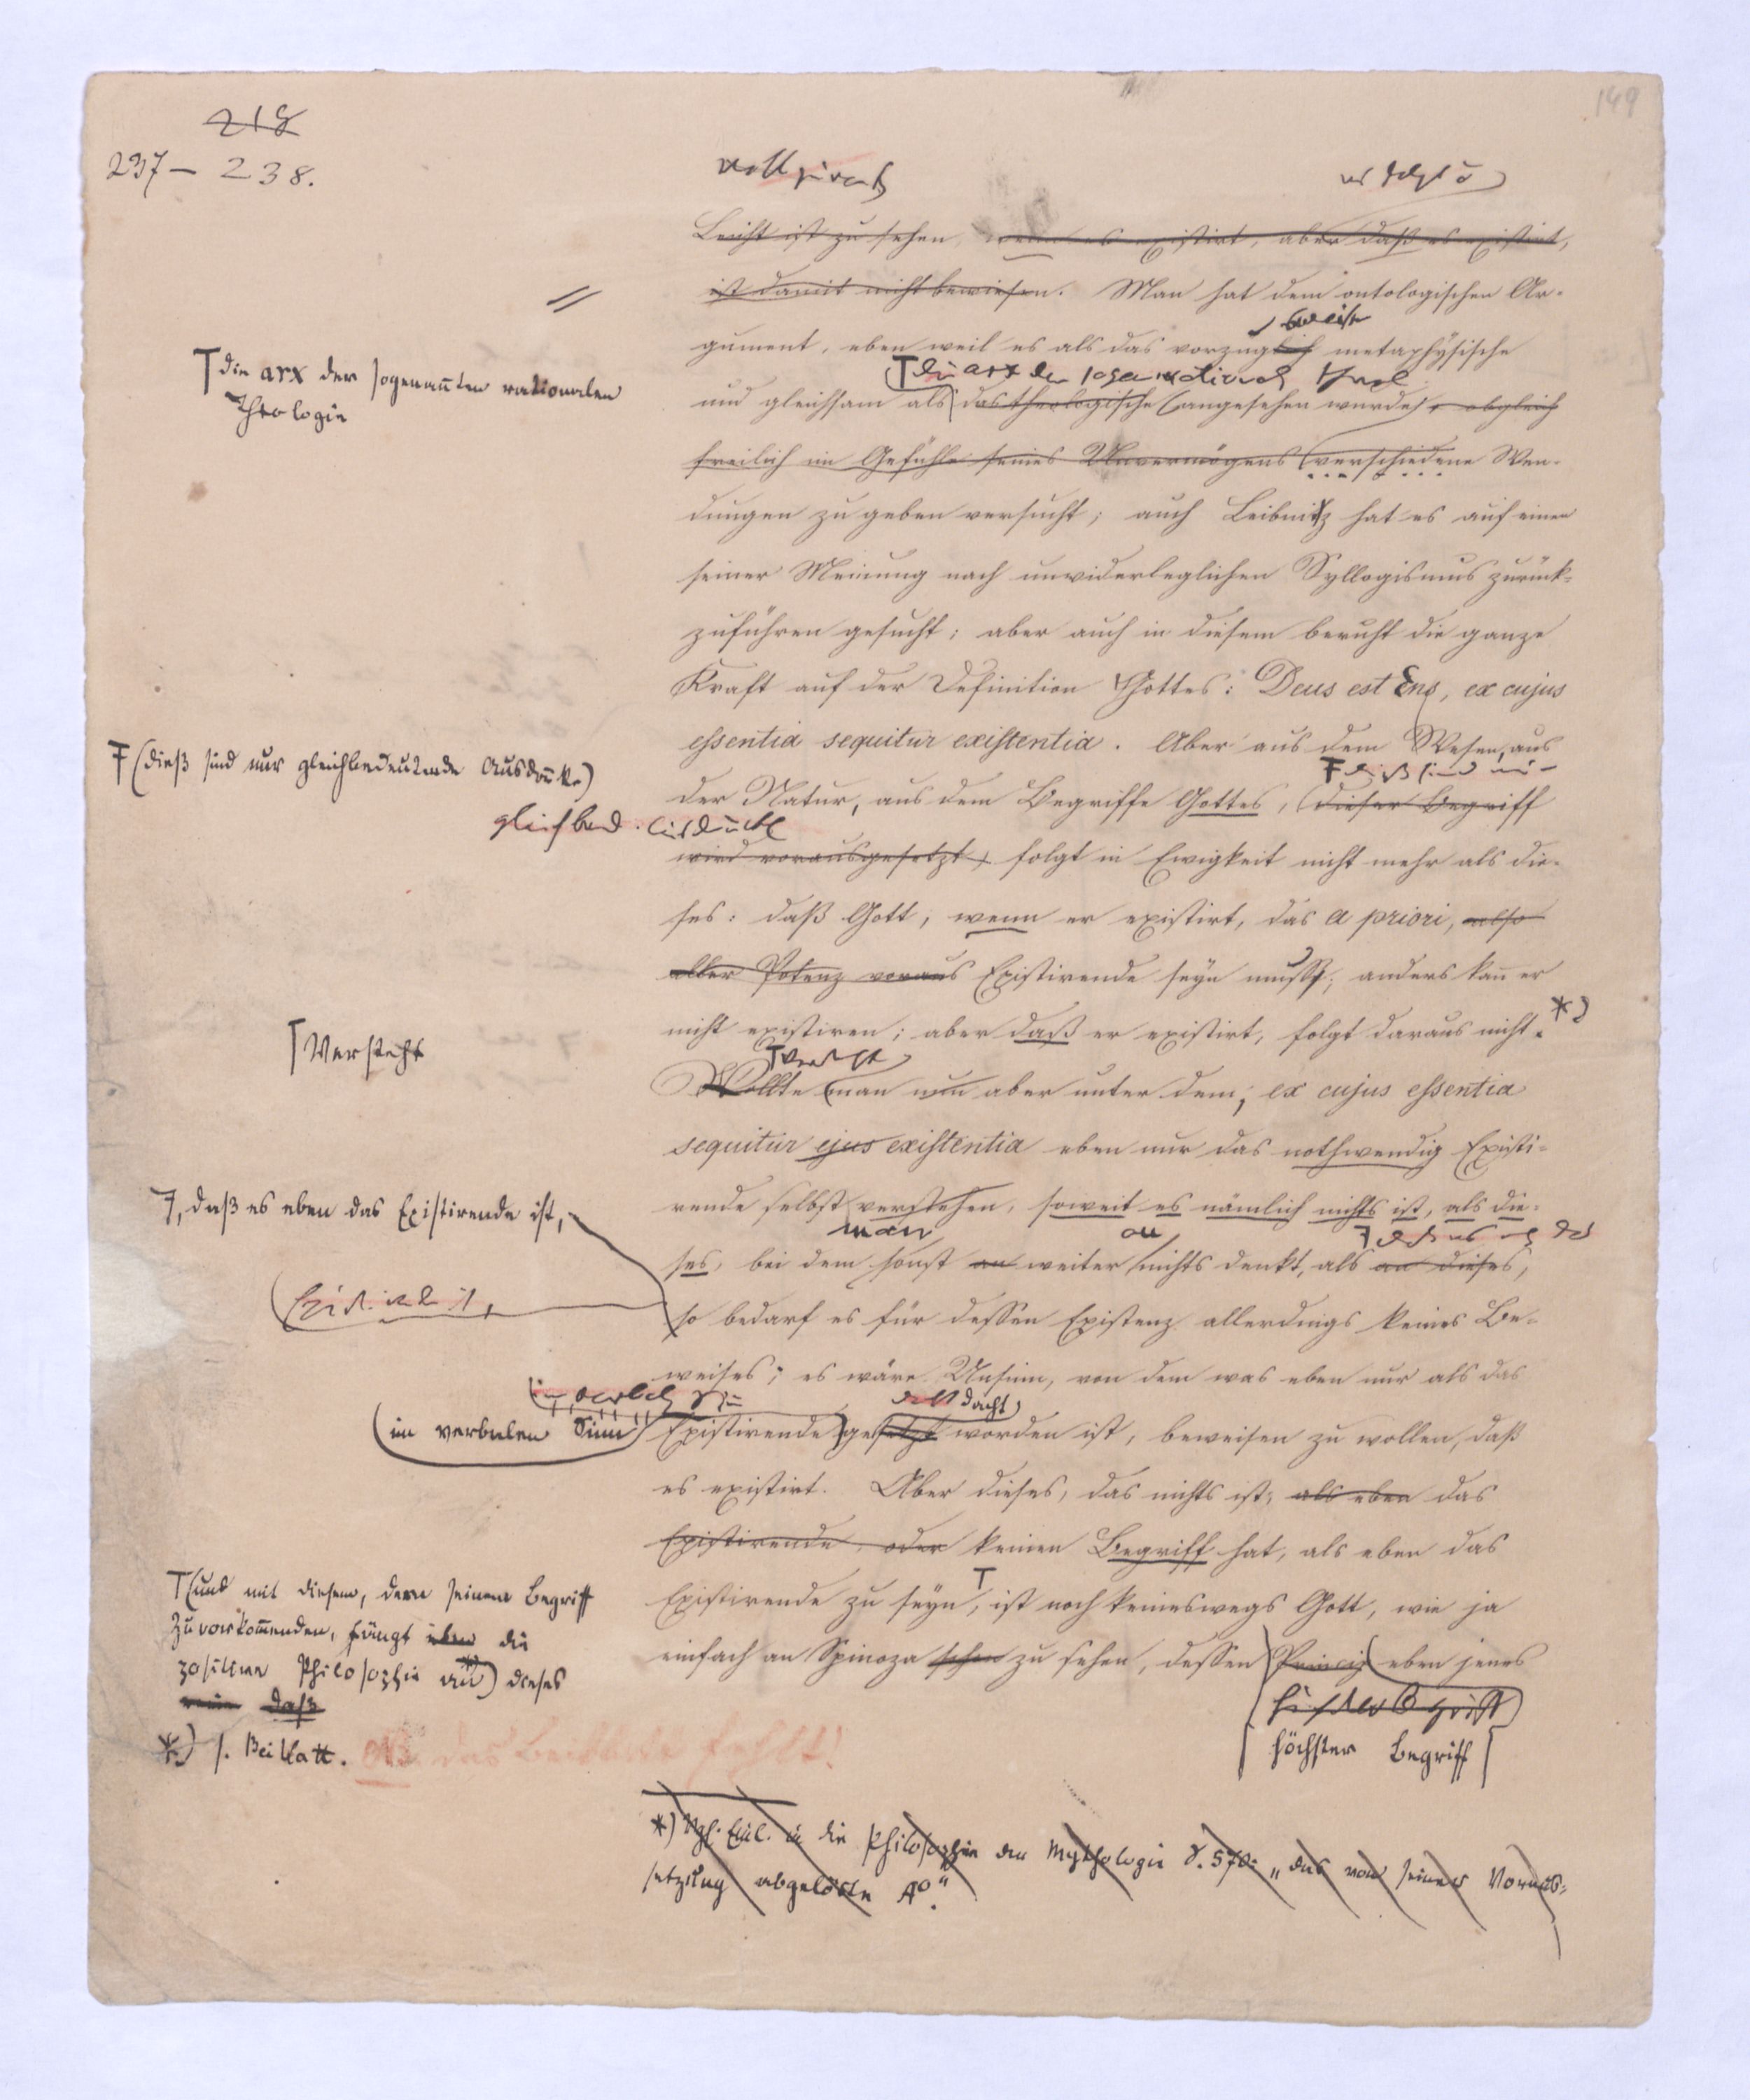 149
218
237 – 238.
Leicht ist zu sehen, wenn es existirt, aber daß es existirt,
ist damit nicht bewiesen. Man hat dem ontologischen Ar-
gument, eben weil es als das vorzugsweise metaphysische
die arx der sogenannten rationalen
Theologie
und gleichsam als das theologische (angesehen wurde), obgleich
freilich im Gefühle seines Unvermögens verschiedene Wen-
dungen zu geben versucht; auch Leibnitz hat es auf einen
seiner Meinung nach unwiderleglichen Syllogismus zurück-
zuführen gesucht; aber auch in diesem beruht die ganze
Kraft auf der Definition Gottes: Deus est Ens, ex cujus
essentia sequitur existentia. Aber aus dem Wesen, aus
(dieß sind nur gleichbedeutende Ausdrücke)
der Natur, aus dem Begriffe Gottes, (dieser Begriff
gleichbed. Ausdrücke
wird vorausgesetzt, folgt in Ewigkeit nicht mehr als die-
ses: daß Gott, wenn er existirt, das a priori, also
aller Potenz voraus Existirende seyn muß; anders kann er
nicht existiren; aber daß er existirt, folgt daraus nicht. *)
Versteht
Wollte man nun aber unter dem, ex cujus essentia
sequitur ejus existentia eben nur das nothwendig Existi-
rende selbst verstehen, soweit es nämlich nichts ist, als die-
, daß es eben das Existirende ist,
man an
ses, bei dem sonst an weiter nichts denkt, als an dieses,
Existirende ist,
so bedarf es für dessen Existenz allerdings keines Be-
weises; es wäre Unsinn, von dem was eben nur als das
(im verbalen Sinn) Existirende gesetzt worden ist, beweisen zu wollen, daß
dacht
es existirt. Aber dieses, das nichts ist, als eben das
Existirende, oder keinen Begriff hat, als eben das
Existirende zu seyn, ist noch keineswegs Gott, wie ja
einfach an Spinoza schon zu sehen, dessen Princip eben jenes
höchster Begriff
höchster Begriff
(und mit diesem, dem seinem Begriff
Zuvorkommenden, fängt eben die
positive Philosophie an) dieses
Daß
*) s. Beiblatt. NB das Beiblatt fehlt!
*) Vgl. Einl. in die Philosophie der Mythologie S. 570: „das von seiner Voraus-
setzung abgelöste A⁰."